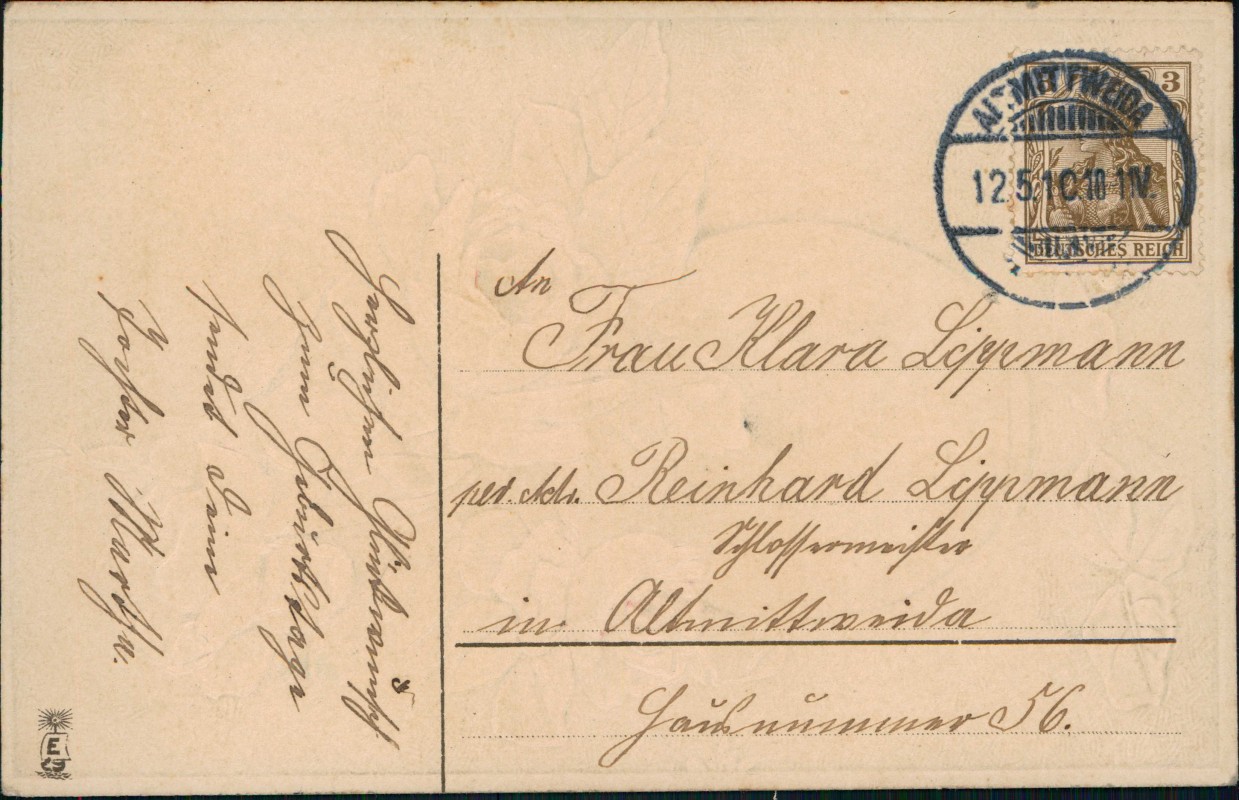 Herzlichen Glückwunsch
zum Geburtstage
sendet Deine
Tochter Martha.
ALTMITTWEIDA
12.5.10. 10-11V.
3
DEUTSCHES REICH
An
Frau Klara Lippmann
Reinhard Lippmann
Schlossermeister
in Altmittweida
Hausnummer 56.
E